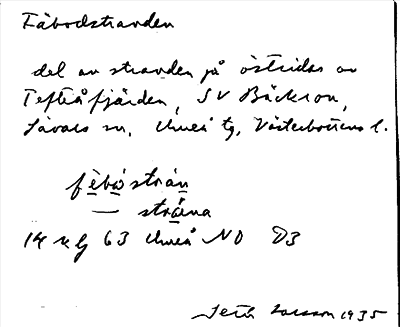 Fäbodstranden
del av stranden på östsidan av
Tefteåfjärden, SV Bäckron,
Sävars sn, Umeå tg, Västerbottens l.
fèbòstrán
— strána
14 63 Umeå NO D3
Seth Larsson 1935